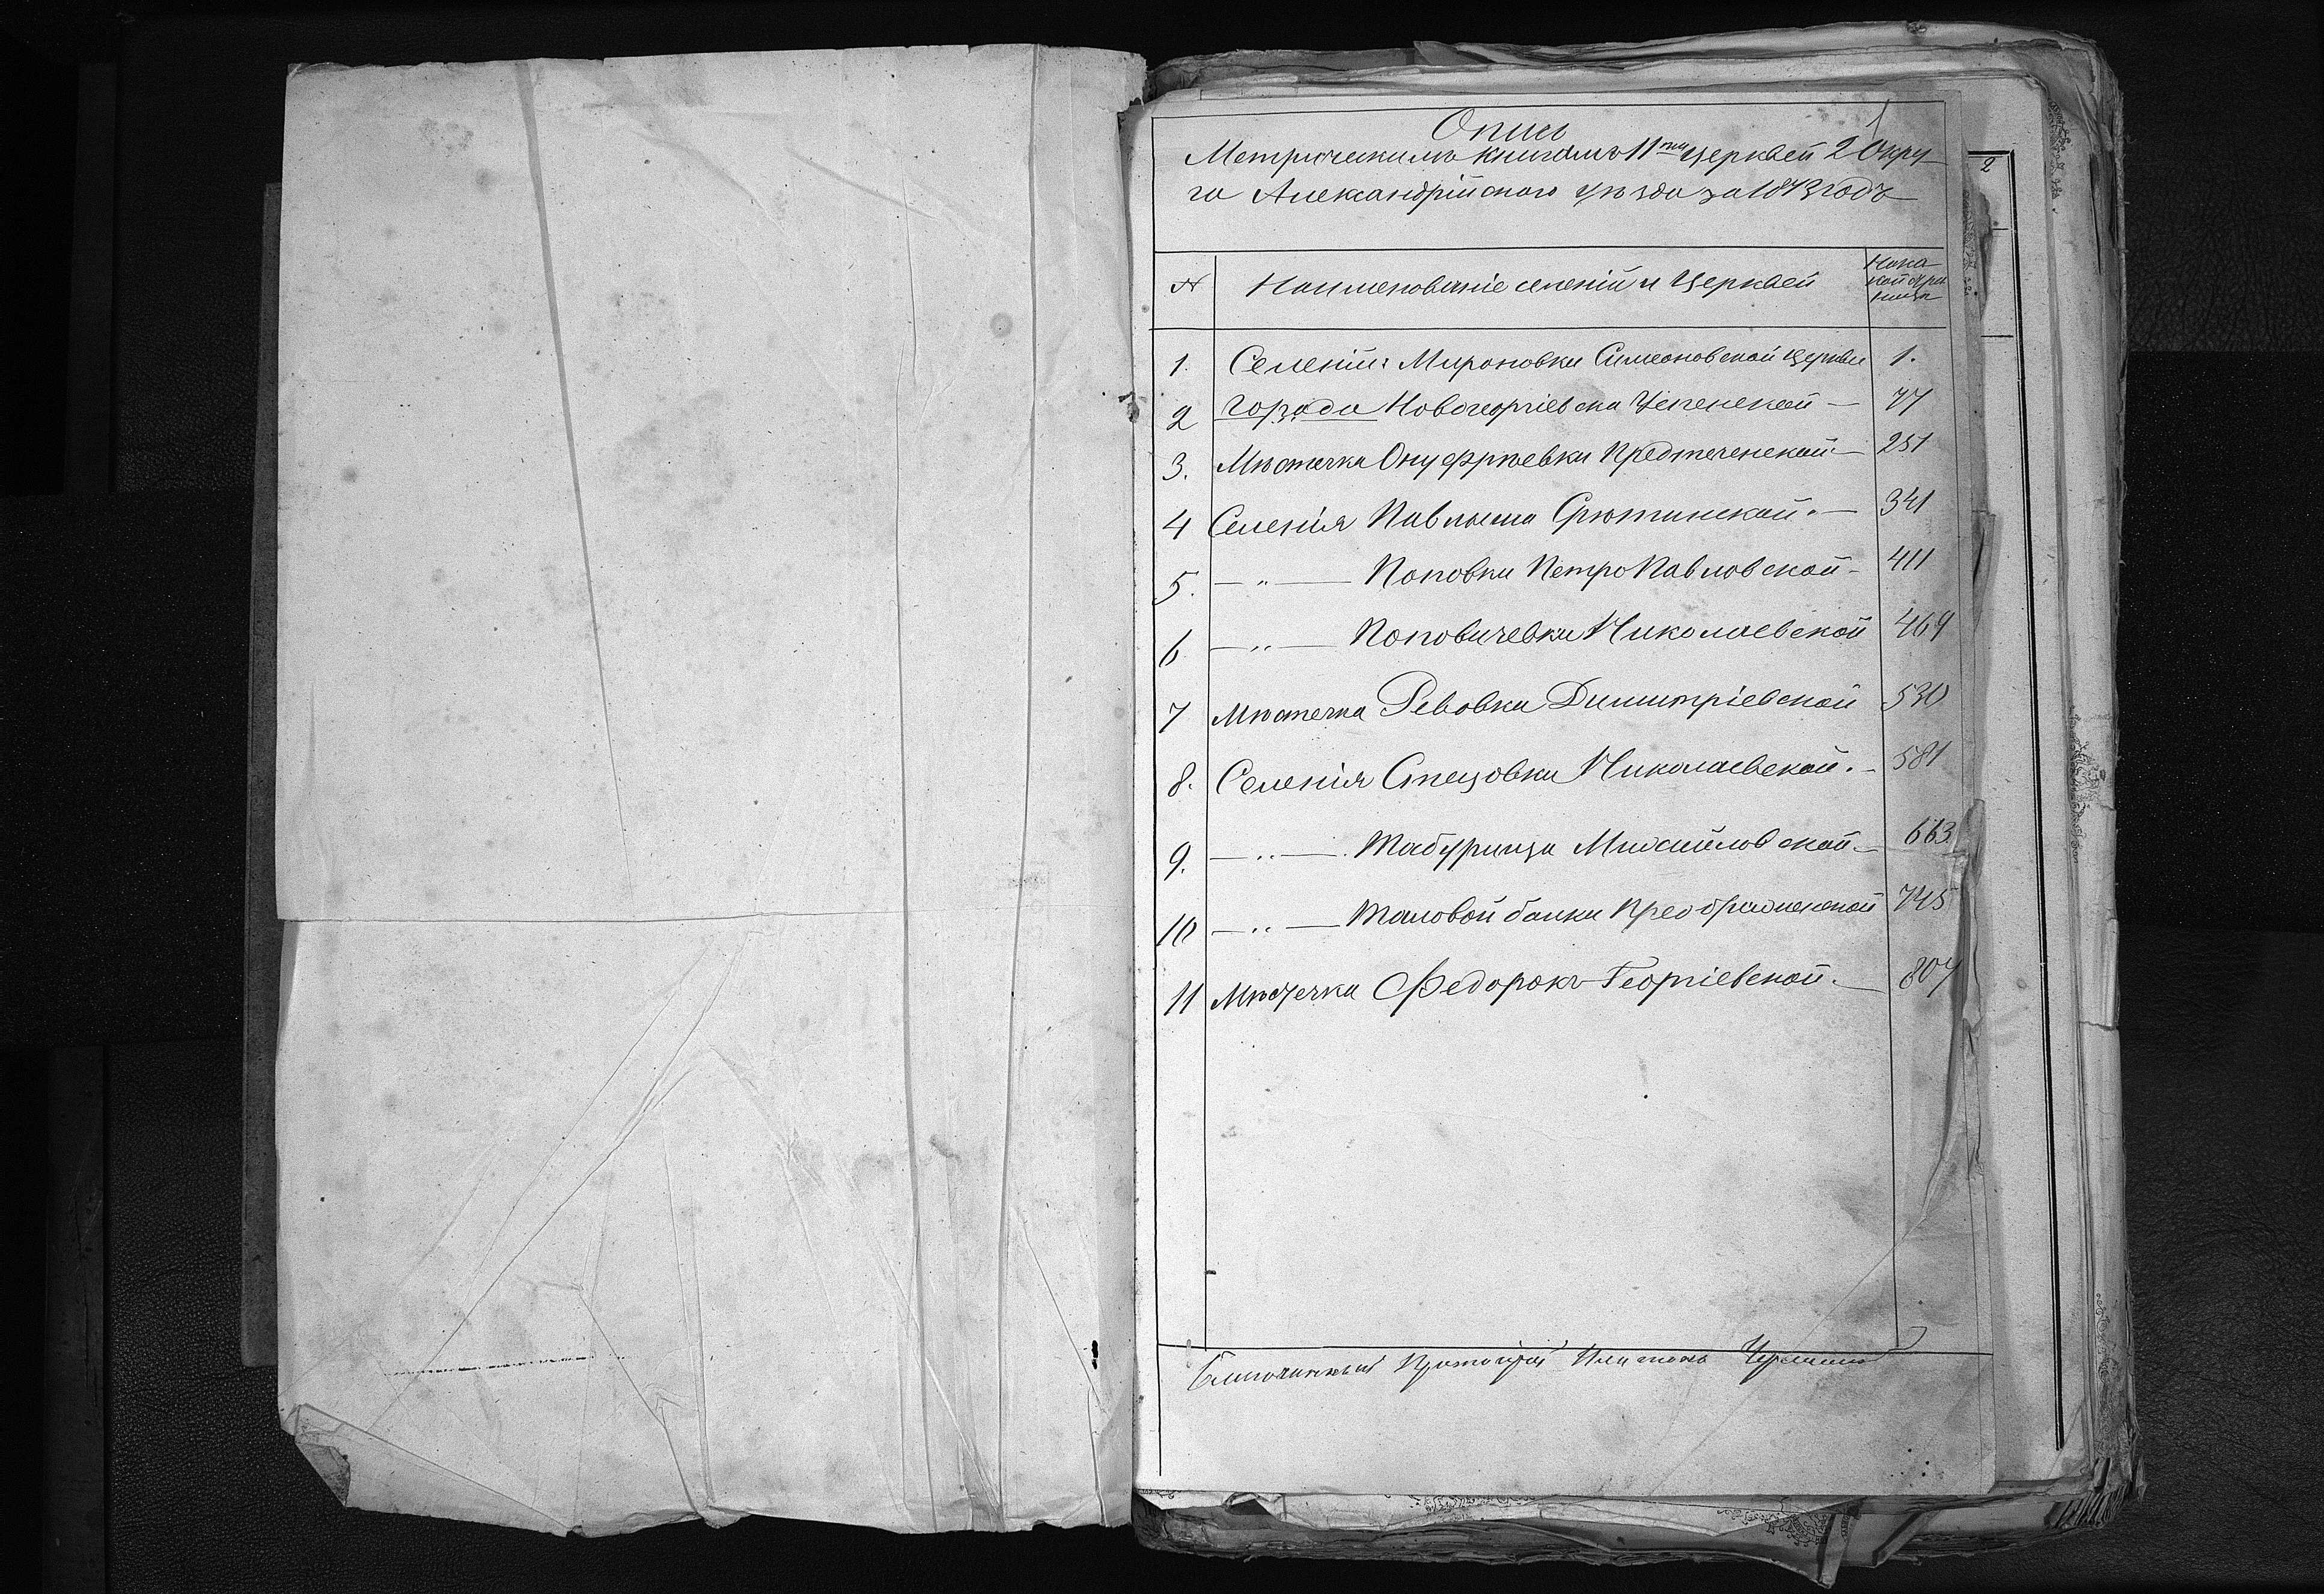 1
Опись
Метрическимъ книгамъ 11ти церквей 2 Окру-
га Александрійского уѣзда за 1873 годъ
2
№ Наименованіе селеній и Церквей На какой стра ницѣ
1. Селенія Мироновки Симеоновской церкви 1.
2 Города Новогеоргіевска Успенской — 77
3. Мѣстечка Онуфріевки Предтеченской — 251
4 Селенія Павлыша Срѣтинской. — 341
5. — „ — Поповки Петро Павловской - 411
6 — „ — Поповичевки Николаевской 469
7 Мѣстечка Ревовки Димитріевской 530
8. Селенія Спецовки Николаевской. - 581
9. — „ — Табурища Михайловской — 663
10 — „ — Таловой балки Преображенской 745
11 Мѣстечка Федорокъ Георгіевской. — 807
Благочинный Протоіерей Платонъ